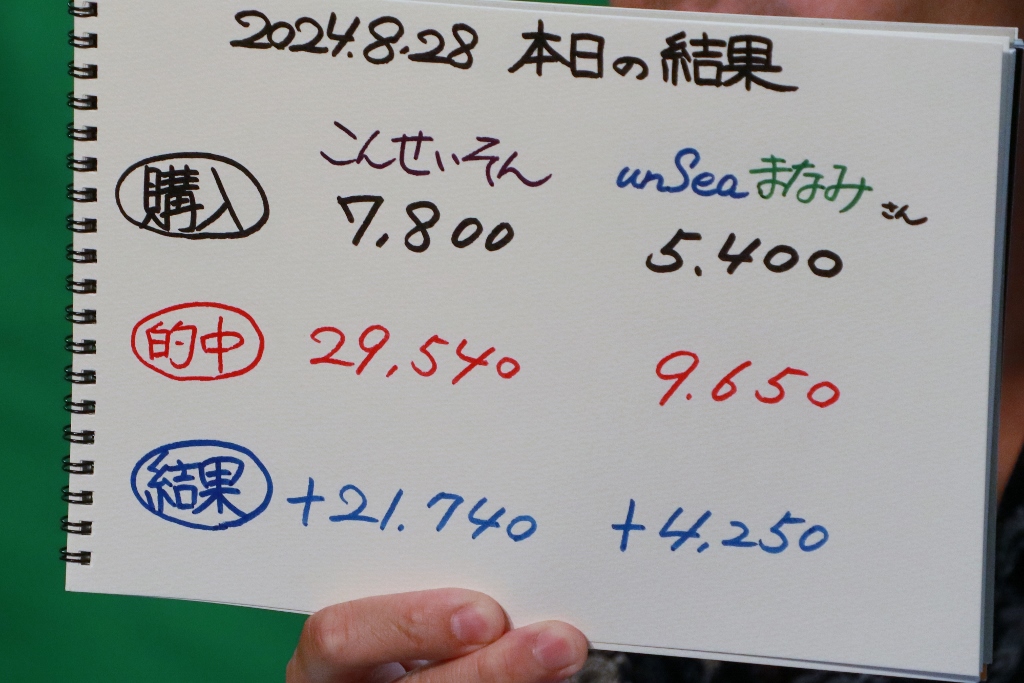 2024.8.28 本日の結果
こんせいそん unSeaまなみさん
購入 7,800 5.400
的中 29,540 9.650
結果 +21.740 +4,250